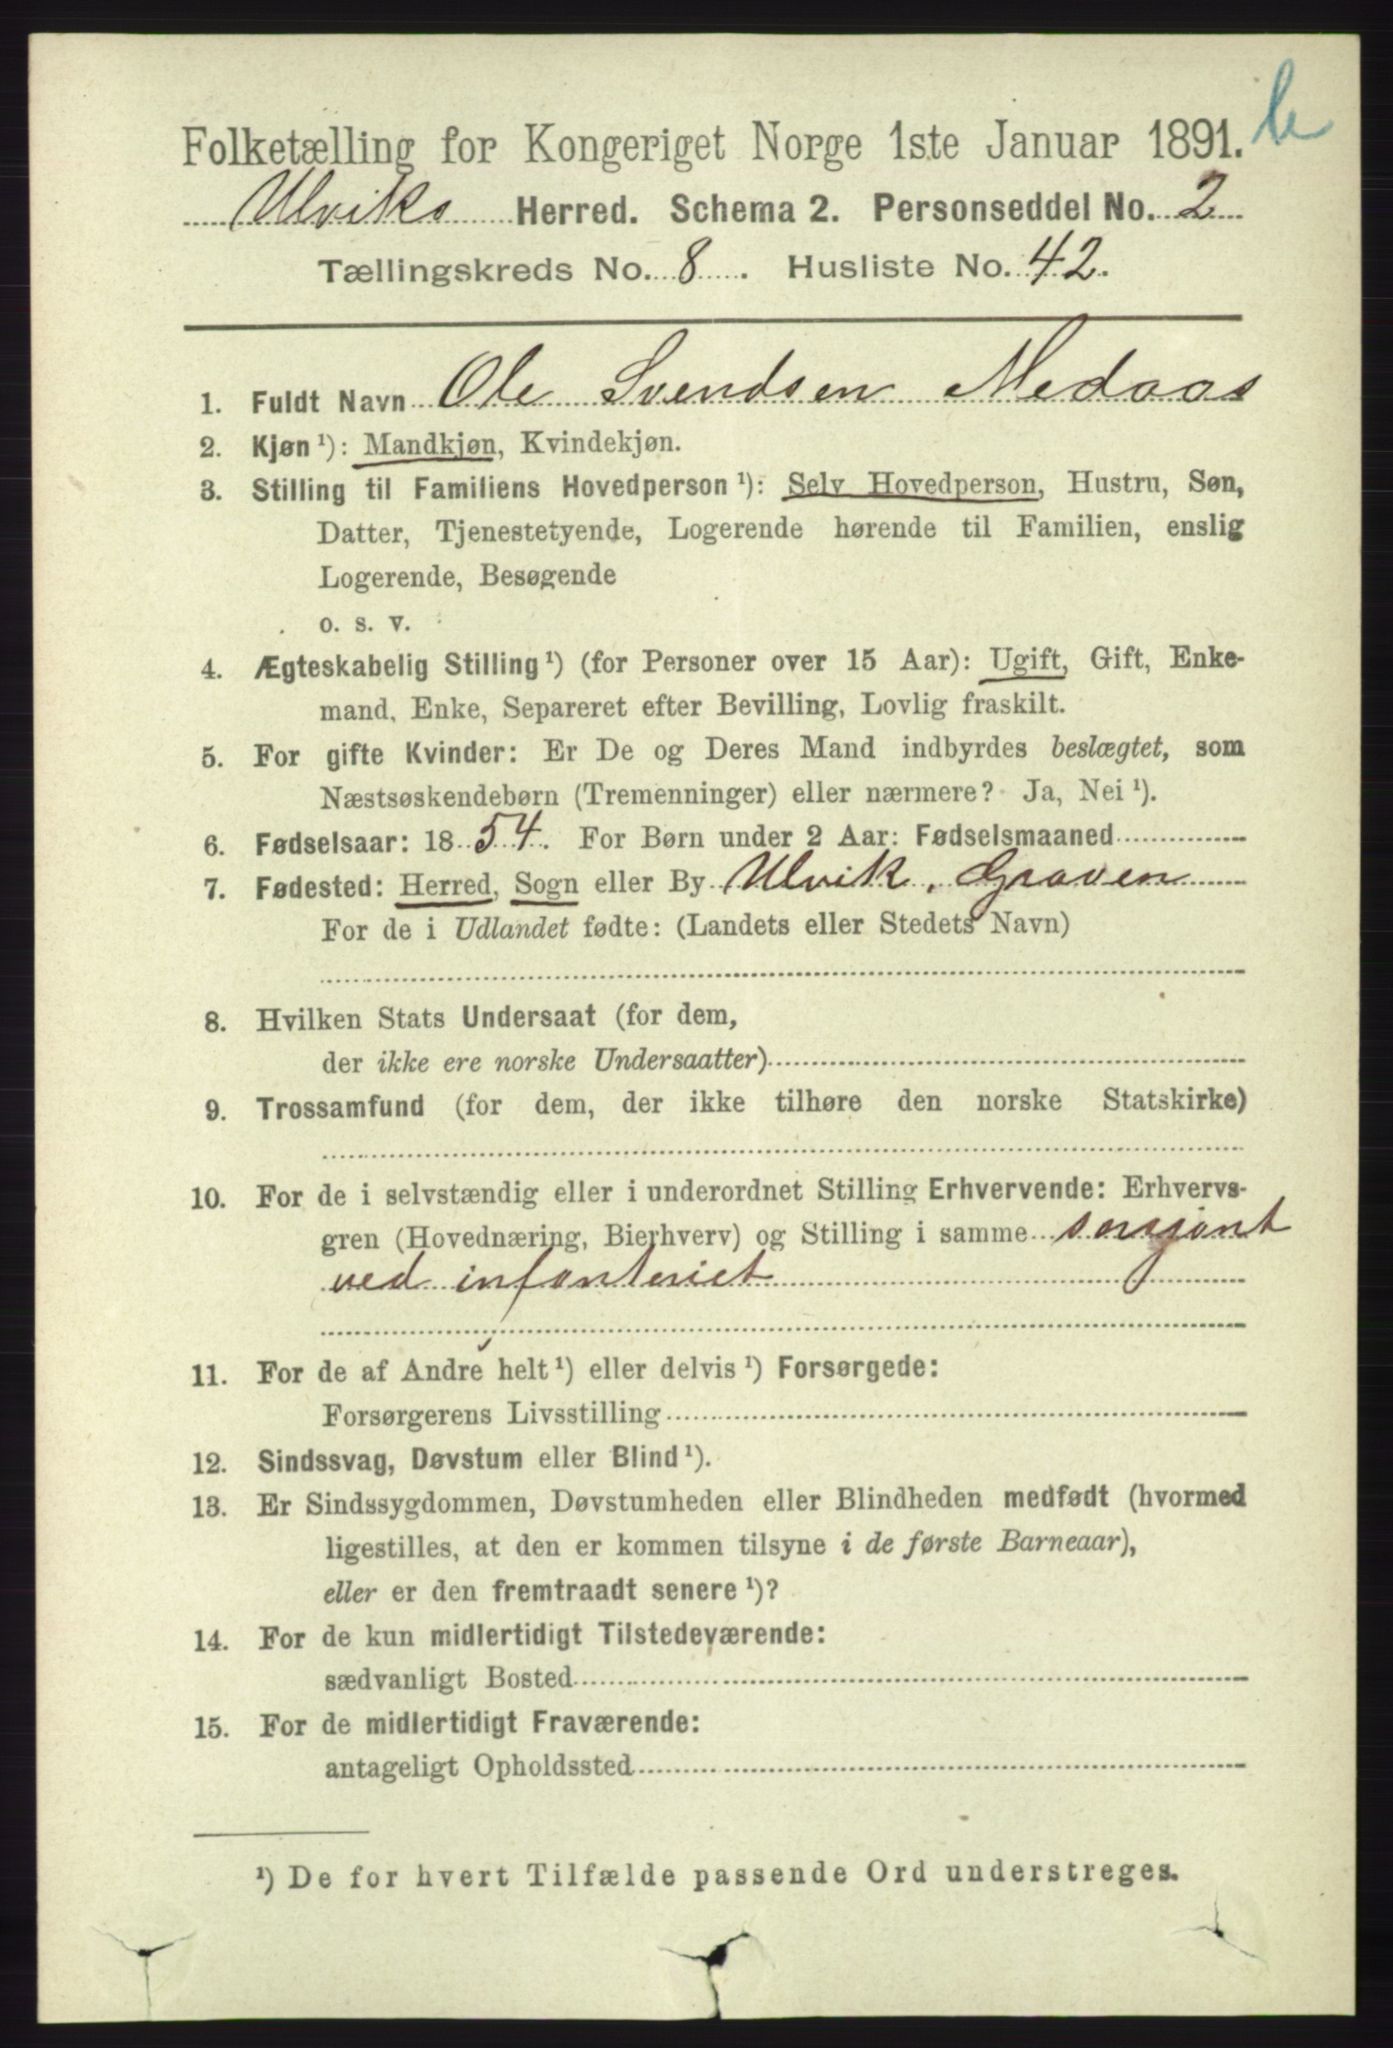 Folketælling for Kongeriget Norge 1ste Januar 1891.
Ulviks Herred. Schema 2. Personseddel No. 2
Tællingskreds No. 8. Husliste No. 42.
1. Fuldt Navn Ole Svendsen Medaas
2. Kjøn ¹): Mandkjøn, Kvindekjøn.
3. Stilling til Familiens Hovedperson ¹): Selv Hovedperson, Hustru, Søn,
Datter, Tjenestetyende, Logerende hørende til Familien, enslig
Logerende, Besøgende
o. s. v.
4. Ægteskabelig Stilling ¹) (for Personer over 15 Aar): Ugift, Gift, Enke-
mand, Enke, Separeret efter Bevilling, Lovlig fraskilt.
5. For gifte Kvinder: Er De og Deres Mand indbyrdes beslægtet, som
Næstsøskendebørn (Tremenninger) eller nærmere? Ja, Nei ¹).
6. Fødselsaar: 1854. For Børn under 2 Aar: Fødselsmaaned
7. Fødested: Herred, Sogn eller By Ulvik, Graven
For de i Udlandet fødte: (Landets eller Stedets Navn)
8. Hvilken Stats Undersaat (for dem,
der ikke ere norske Undersaatter)
9. Trossamfund (for dem, der ikke tilhøre den norske Statskirke)
10. For de i selvstændig eller i underordnet Stilling Erhvervende: Erhvervs-
gren (Hovednæring, Bierhverv) og Stilling i samme sersjant
ved infanteriet
11. For de af Andre helt ¹) eller delvis ¹) Forsørgede:
Forsørgerens Livsstilling
12. Sindssvag, Døvstum eller Blind ¹).
13. Er Sindssygdommen, Døvstumheden eller Blindheden medfødt (hvormed
ligestilles, at den er kommen tilsyne i de første Barneaar),
eller er den fremtraadt senere ¹)?
14. For de kun midlertidigt Tilstedeværende:
sædvanligt Bosted
15. For de midlertidigt Fraværende:
antageligt Opholdssted
¹) De for hvert Tilfælde passende Ord understreges.